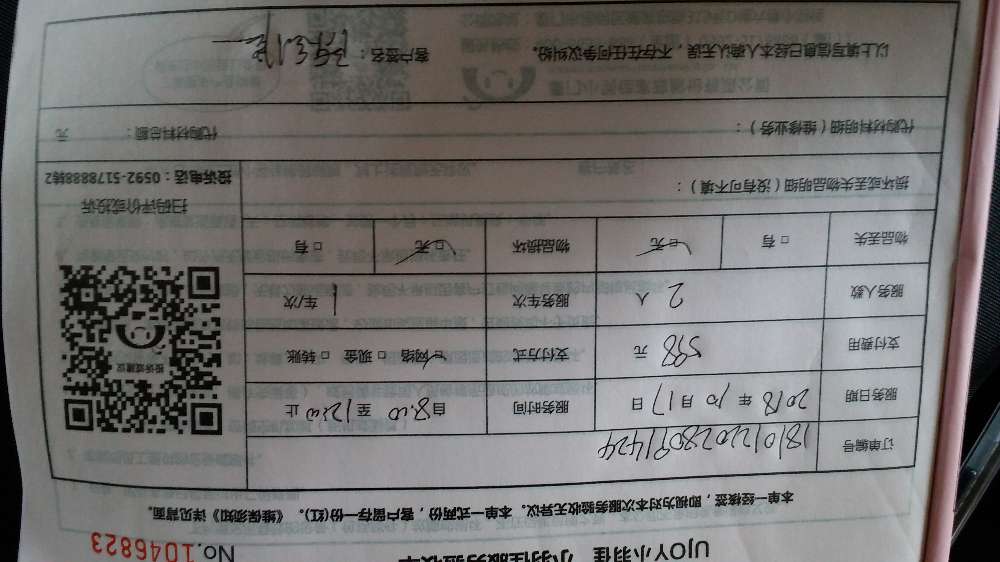 UJOY小羽佳 小羽佳服务验收单
No.1046823
本单一经核签，即视为对本次服务验收无异议。本单一式两份，客户留存一份(红)。《维保须知》详见背面。
订单编号
服务日期 2018 年 10 月 17 日 服务时间 自 8:00 至 12:00 止
支付费用 598 元 支付方式 网络 □ 现金 □ 转账
服务人数 2 人 服务车次 1 车/次
物品丢失 □ 有 □ 无 物品损坏 □ 无 □ 有
投诉或建议
扫码评价或投诉
投诉电话：0592-5178888转2
损坏或丢失物品明细（没有可不填）：
代购材料明细（维修业务）： 代购材料总额： 元
以上填写信息已经本人确认无误，不存在任何争议纠纷。 客户签名：